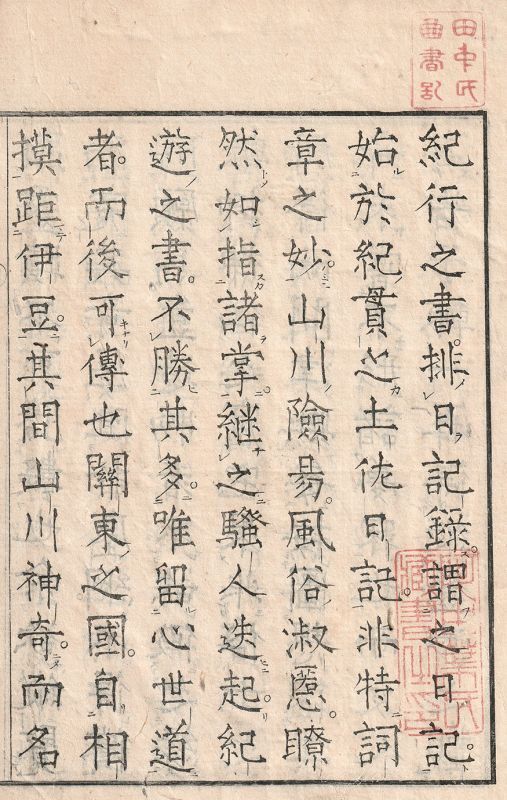 田中氏
紀行之書。排日記錄。謂之日記
始於紀貫之土佐日記。非特詞
章之妙。山川險易。風俗淑慝。瞭
然如指諸掌。継之騷人迭起。紀
遊之書。不勝其多。唯留心世道
者。而後可傳也關東之國。自相
摸距伊豆。其間山川神奇。而名